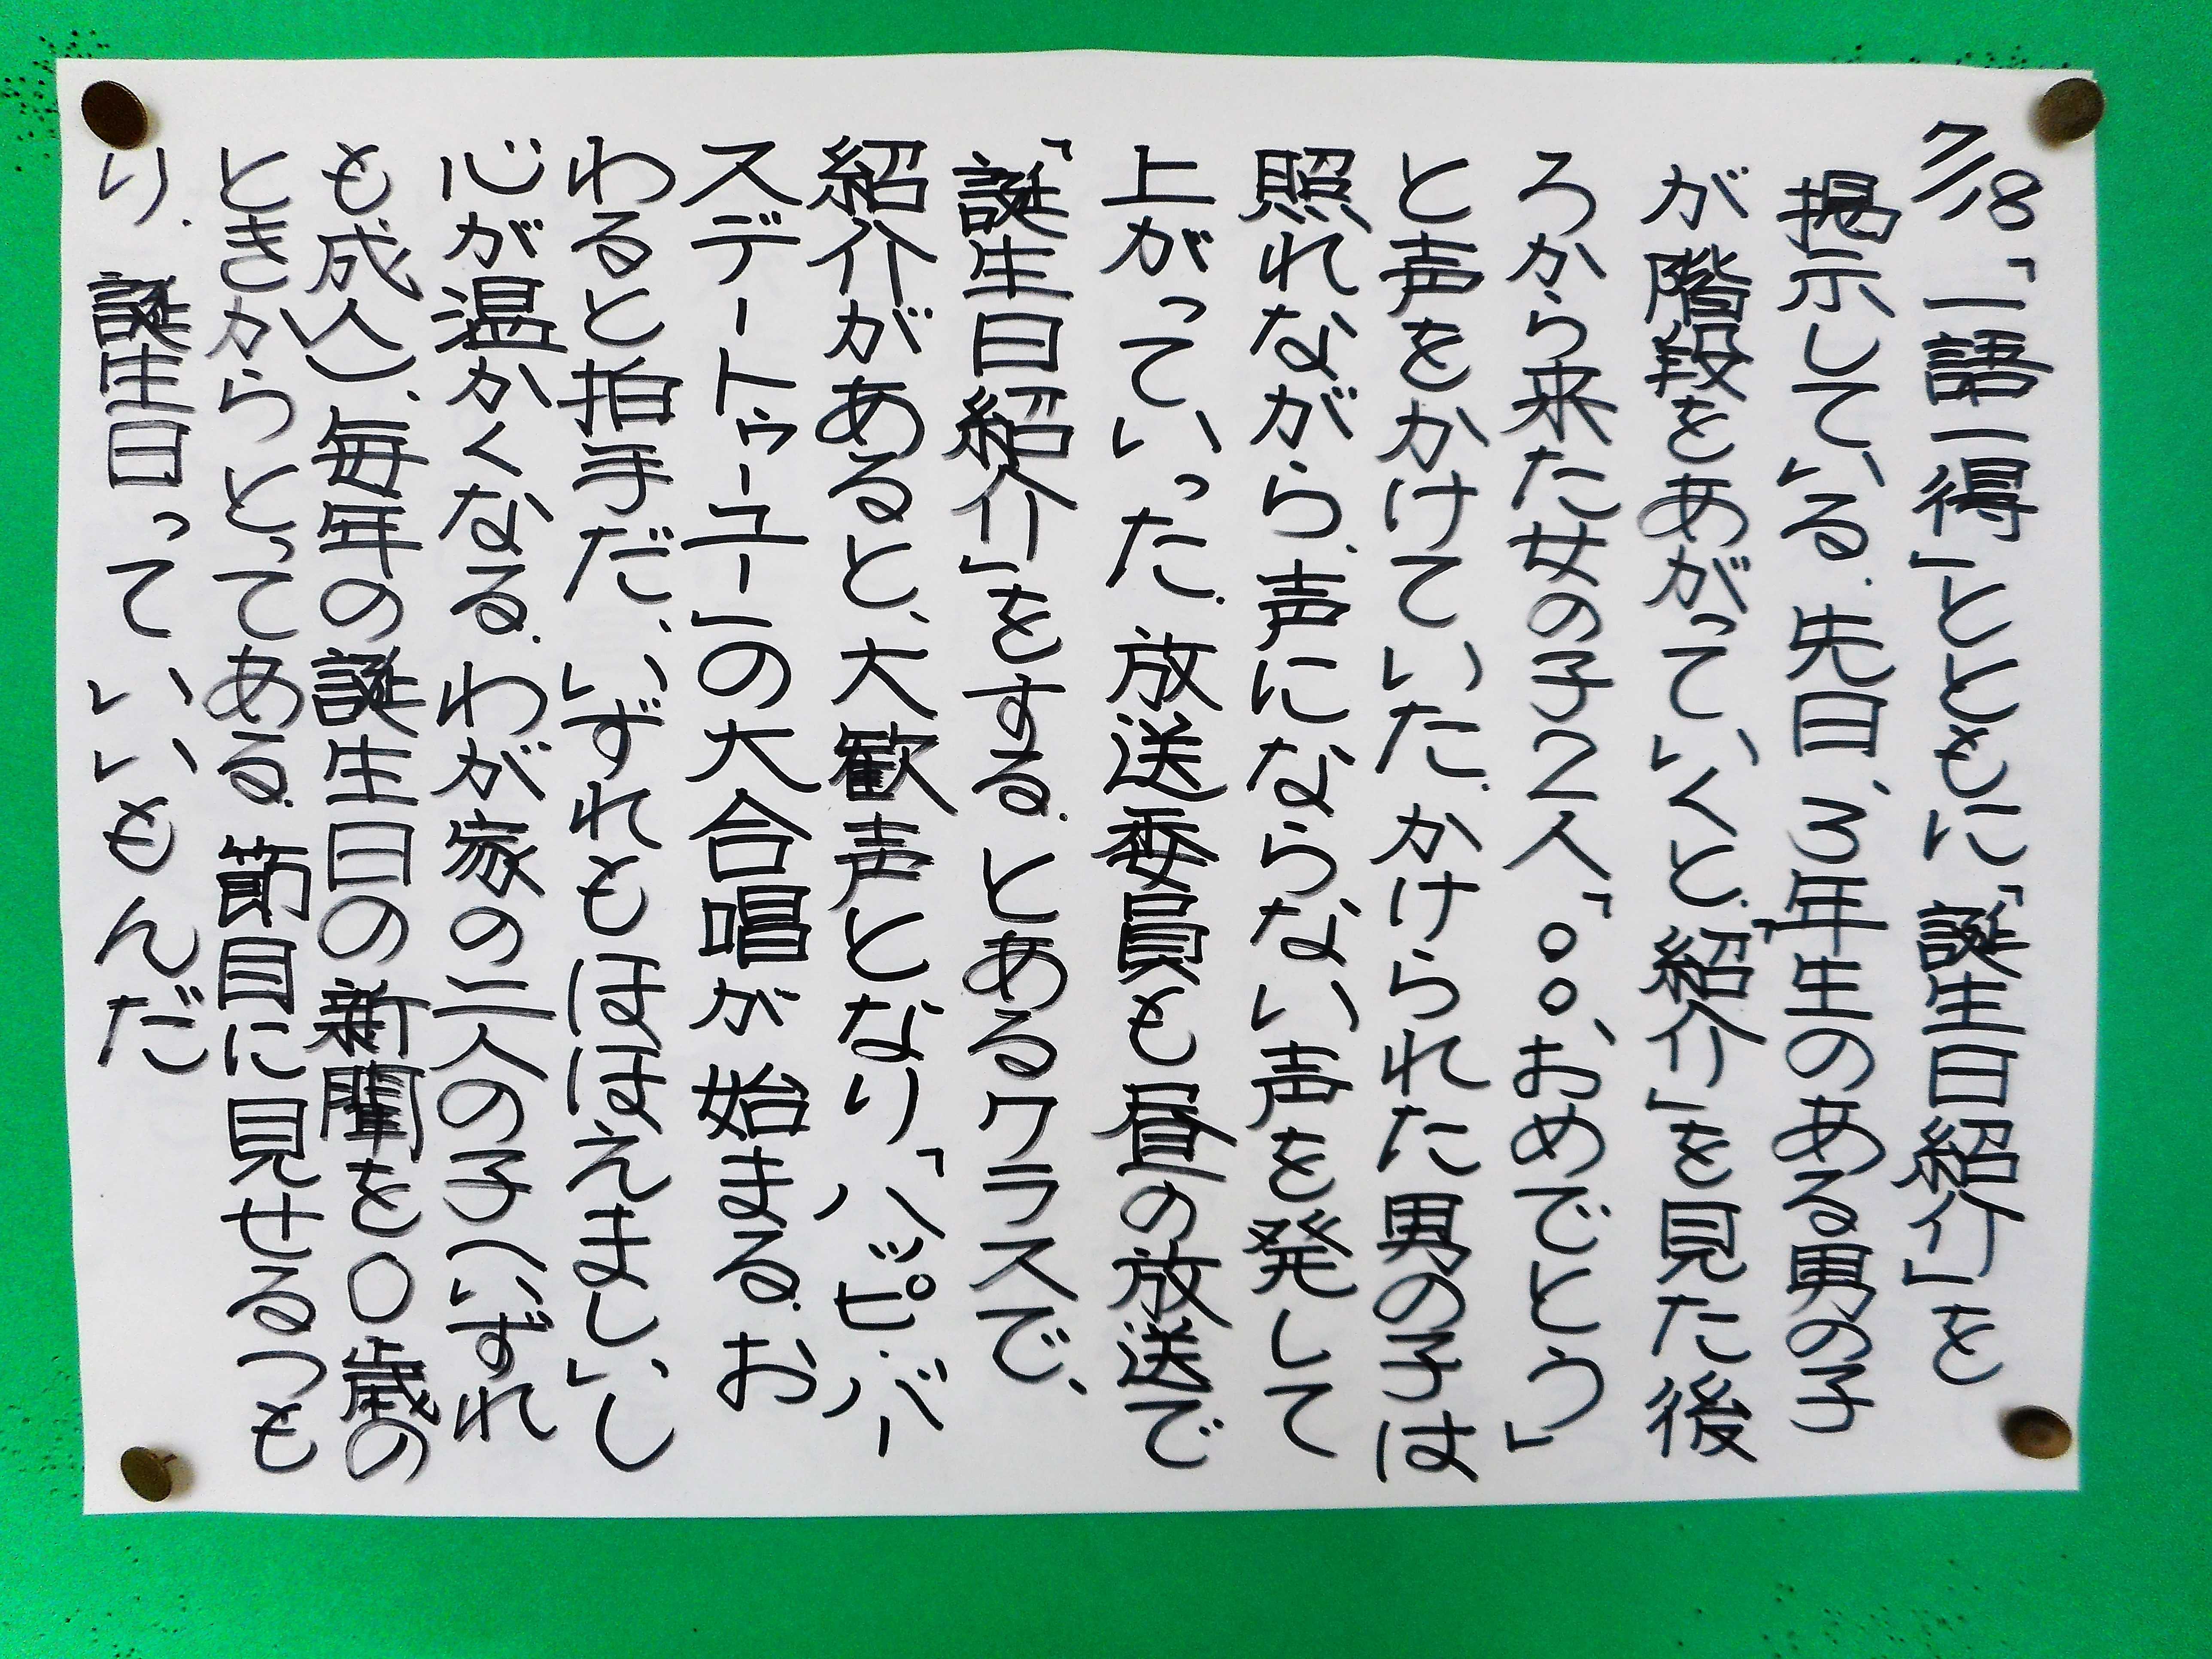 7/18「一語一得」とともに「誕生日紹介」を
掲示している.先日、3年生のある男の子
が階段をあがっていくと.「紹介」を見た後
ろから来た女の子2人「○○、おめでとう」
と声をかけていた.かけられた男の子は
照れながら.声にならない声を発して
上がっていった.放送委員も昼の放送で
「誕生日紹介」をする.とあるクラスで、
紹介があると、大歓声となり「ハッピ・バー
スデートゥーユー」の大合唱が始まる.お
わると拍手だ、いずれもほほえましいし
心が温かくなる.わが家の二人の子(いずれ
も成人)、毎年の誕生日の新聞を○歳の
ときからとってある.節目に見せるつも
り.誕生日っていいもんだ